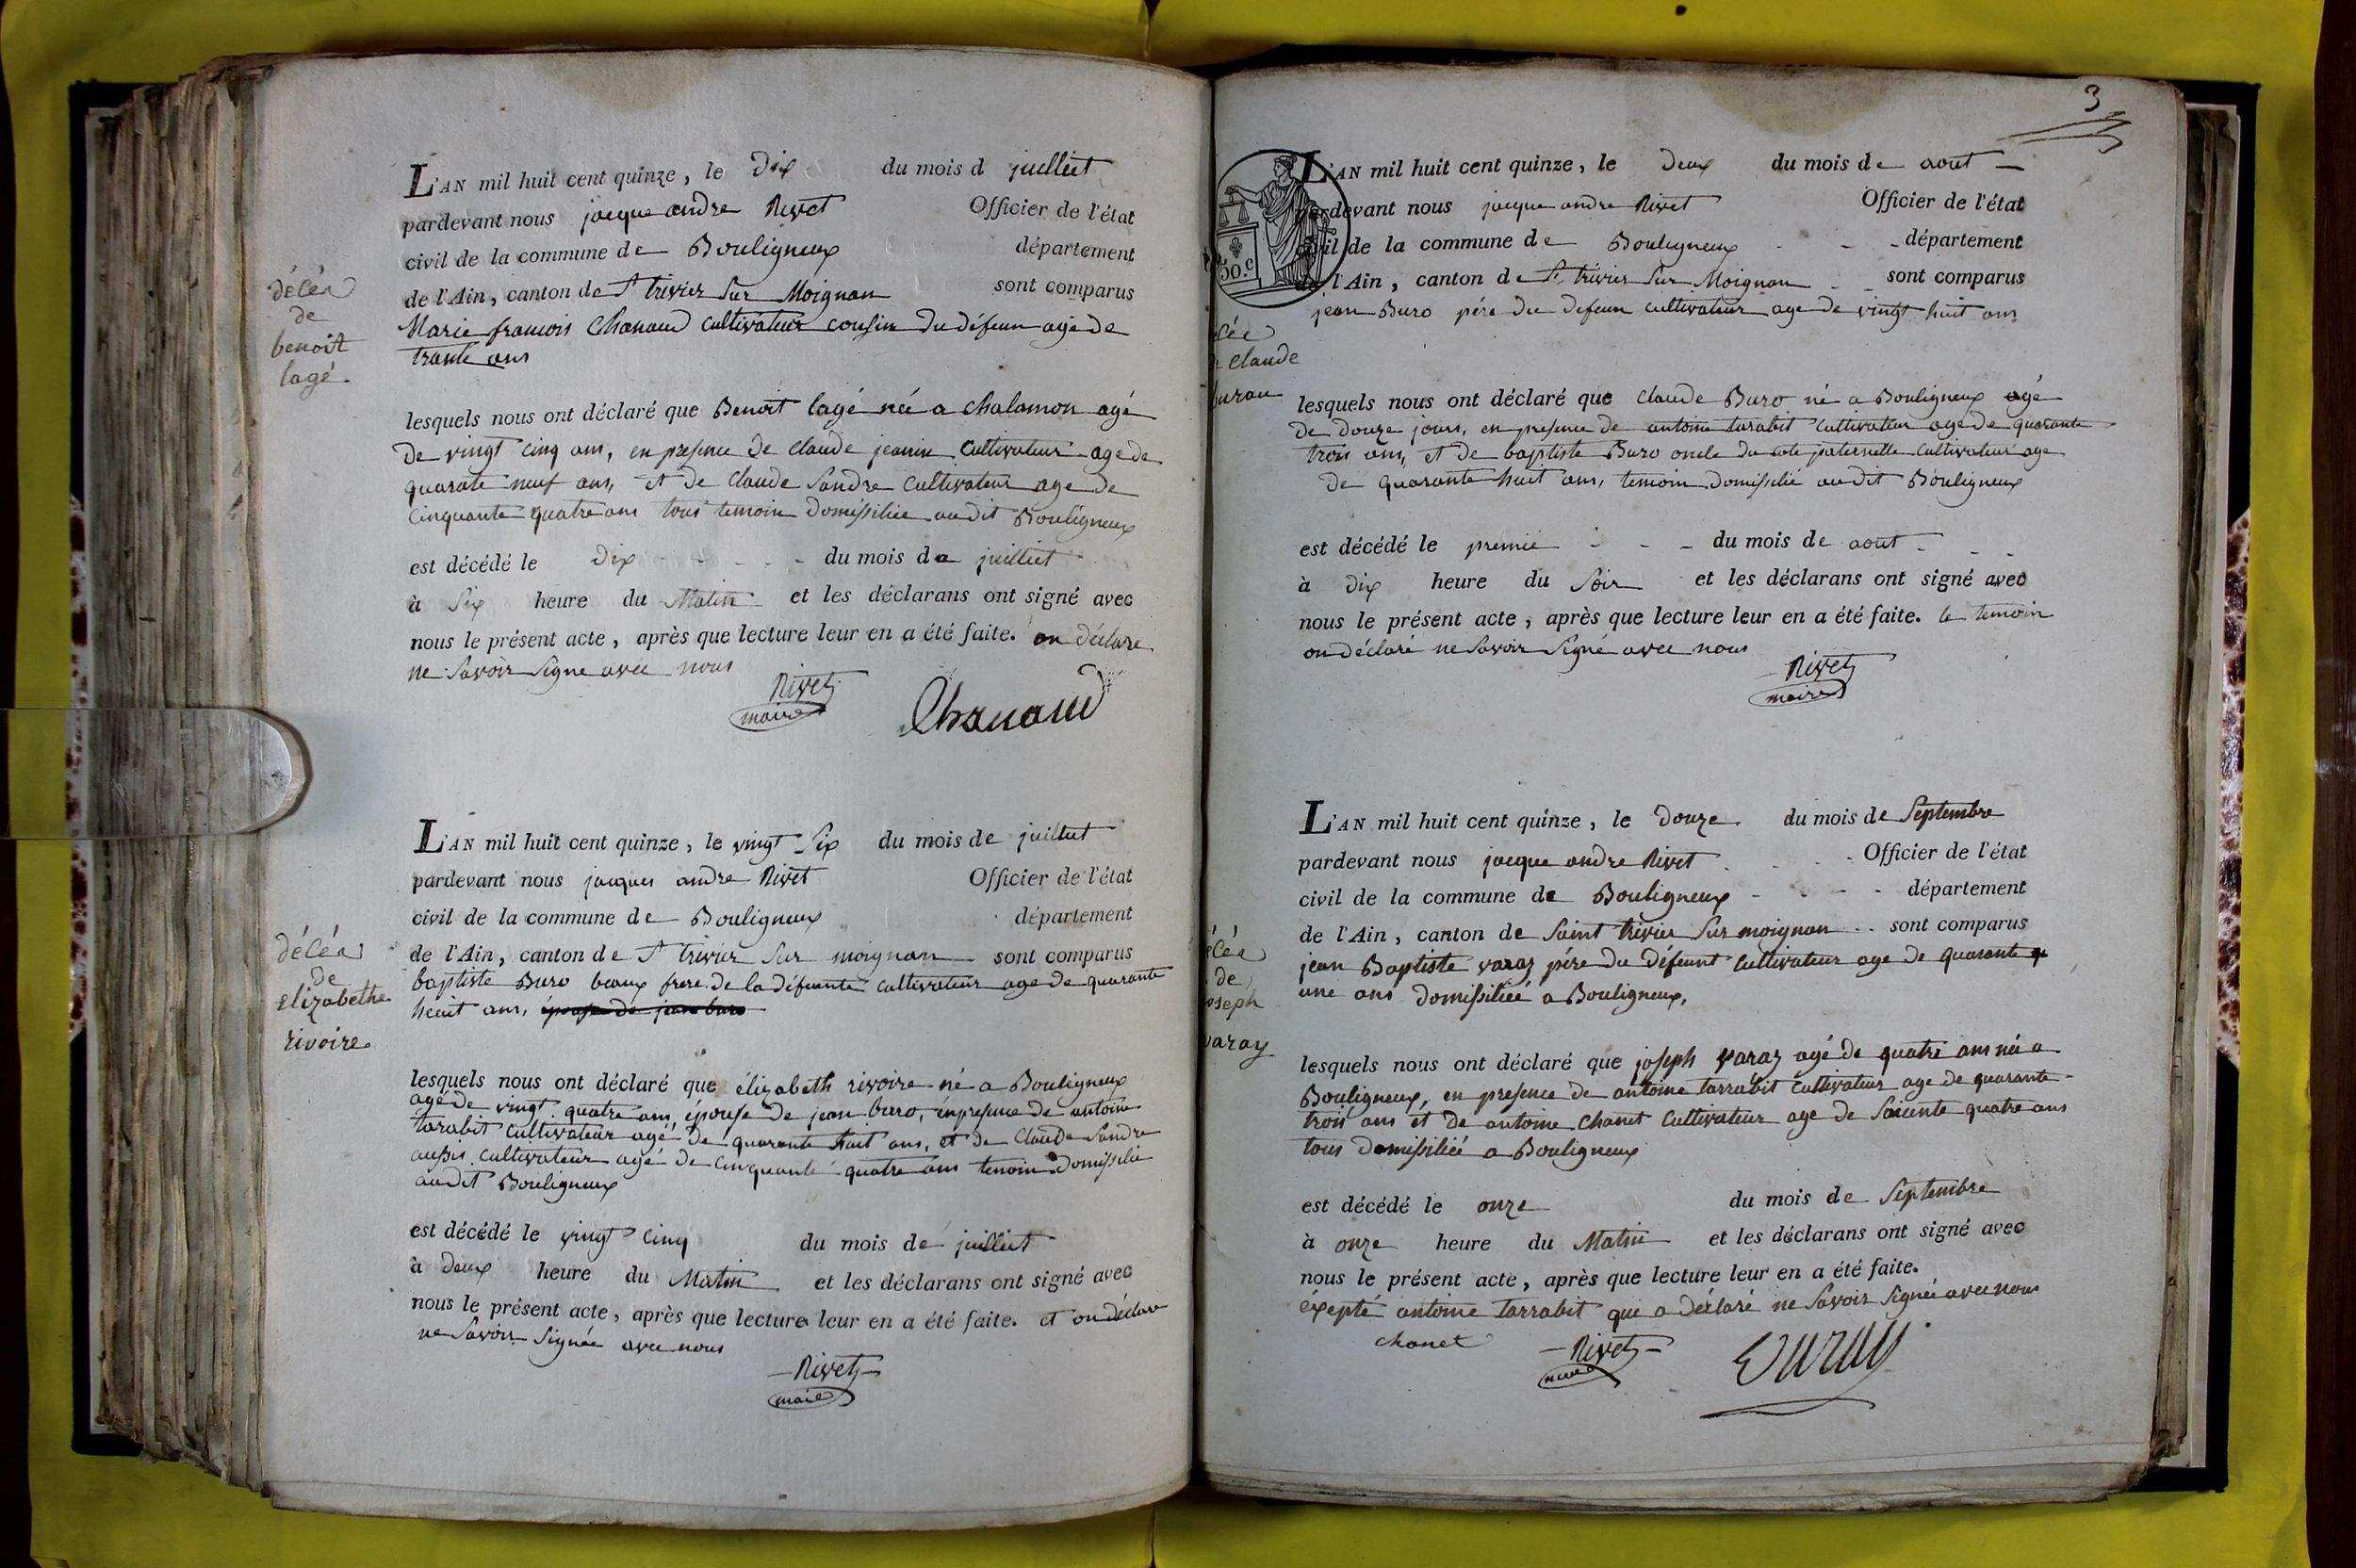 décéa
de
benoit
lagé.
L'AN mil huit cent quinze, le Dix du mois d juilliet
pardevant nous jacque andre Rivet Officier de l'état
civil de la commune de Bouligneux département
de l'Ain, canton de St trivier Sur Moignan sont comparus
Marie francois Chanaud cultivateur cousin du défeun agé de
trante ans
lesquels nous ont déclaré que Benoit lagé née a chalamon agé
de vingt cinq ans, en presence de claude jeanin cultivateur age de
quarate neuf ans, et de claude Sandre cultivateur age de
cinquante quatre ans tous temoin domissiliée audit Bouligneux
est décédé le Dix du mois de juilliet
à Six heure du Matin et les déclarans ont signé avec
nous le présent acte, après que lecture leur en a été faite. on déclare
ne Savoir Signe avec nous
Rivet
maire
Chanaud
décéa
de
elizabethe
rivoire.
L'AN mil huit cent quinze, le vingt Six du mois de juilliet
pardevant nous jacques andre Rivet Officier de l'état
civil de la commune de Bouligneux département
de l'Ain, canton de St trivier Sur moignan sont comparus
baptiste Buro beaux frere de la défeunte cultivateur age de quarante
heuit ans, épouse de jean buro
lesquels nous ont déclaré que élizabeth rivoire né a Bouligneux
agé de vingt quatre ans, épouse de jean buro, en presence de antoine
tarabit cultivateur agé de quarante huit ans, et de Claude Sandre
aussi cultivateur agé de cinquante quatre ans temoin domissilié
audit Bouligneux
est décédé le vingt cinq du mois de juilliet
à deux heure du Matin et les déclarans ont signé avec
nous le présent acte, après que lecture leur en a été faite. et on déclare
ne Savoir Signée avec nous
Rivet
maire
3
50.c
L'AN mil huit cent quinze, le deux du mois de aout
pardevant nous jacque andre Rivet Officier de l'état
civil de la commune de Bouligneux département
de l'Ain, canton de St trivier Sur Moignan sont comparus
jean Buro pére du defeun cultivateur age de vingt huit ans
claude
buron
lesquels nous ont déclaré que claude Buro né a Bouligneux agé
de douze jours, en presence de antoine tarabit cultivateur age de quarante
trois ans, et de baptiste Buro oncle du cote paternelle cultivateur age
de quarante huit ans, temoin domissilié audit Bouligneux
est décédé le premie du mois de aout
à dix heure du Soir et les déclarans ont signé avec
nous le présent acte, après que lecture leur en a été faite. le temoin
on déclaré ne Savoir Signé avec nous
Rivet
maire
L'AN mil huit cent quinze, le douze du mois de Septembre
pardevant nous jacque andre Rivet Officier de l'état
civil de la commune de Bouligneux département
de l'Ain, canton de Saint trivier Sur moignan sont comparus
jean Baptiste varay pére du défeunt cultivateur age de quarante
une ans domissiliéé a Bouligneux,
de
oseph
varay
lesquels nous ont déclaré que joseph varay agé de quatre ans né a
Bouligneux, en presence de antoine tarrabit cultivateur age de quarante
trois ans et de antoine chanet cultivateur age de Soicente quatre ans
tous domissiliéé a Bouligneux
est décédé le onze du mois de Septembre
à onze heure du Matin et les déclarans ont signé avec
nous le présent acte, après que lecture leur en a été faite.
éxepté antoine tarrabit qui a déclaré ne Savoir Signéé avec nous
chanet
Rivet
maire
Varay